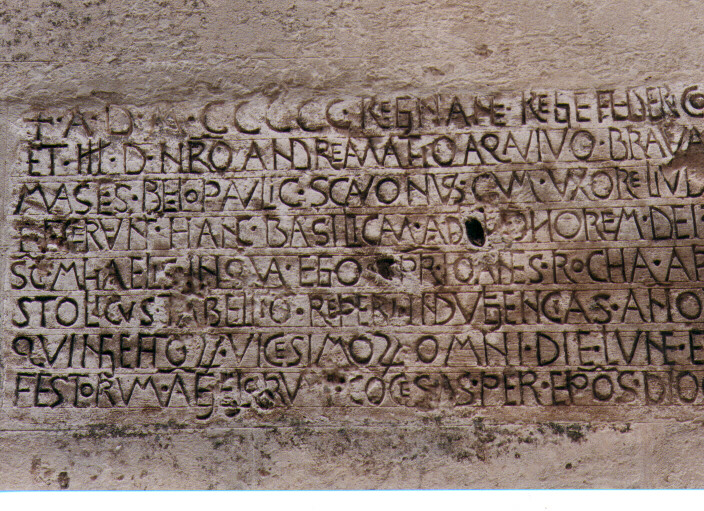 + A · D · M · CCCCC · REGNANE · REGE FEDERICO
ET · III · D · NRO ANDREA MATO AQVIVO · BRAVA
MAS ES · BEIO PAVLI C · SCAVONVS · CVM · VXORE
RVN · HANC · BASILICAM · AD HONOREM · DEI ·
SC · MHAELS IN QVA · EGO PR · IOANES · ROCHA · AP
STOLICVS TABELIO · REPERI INDVGENCAS · ANO
QVINGETO · VICESIMO · OMNI · DIE · LVN · E
FESTORVM · AGELORV COCESAS · PER · EPOS · DIO